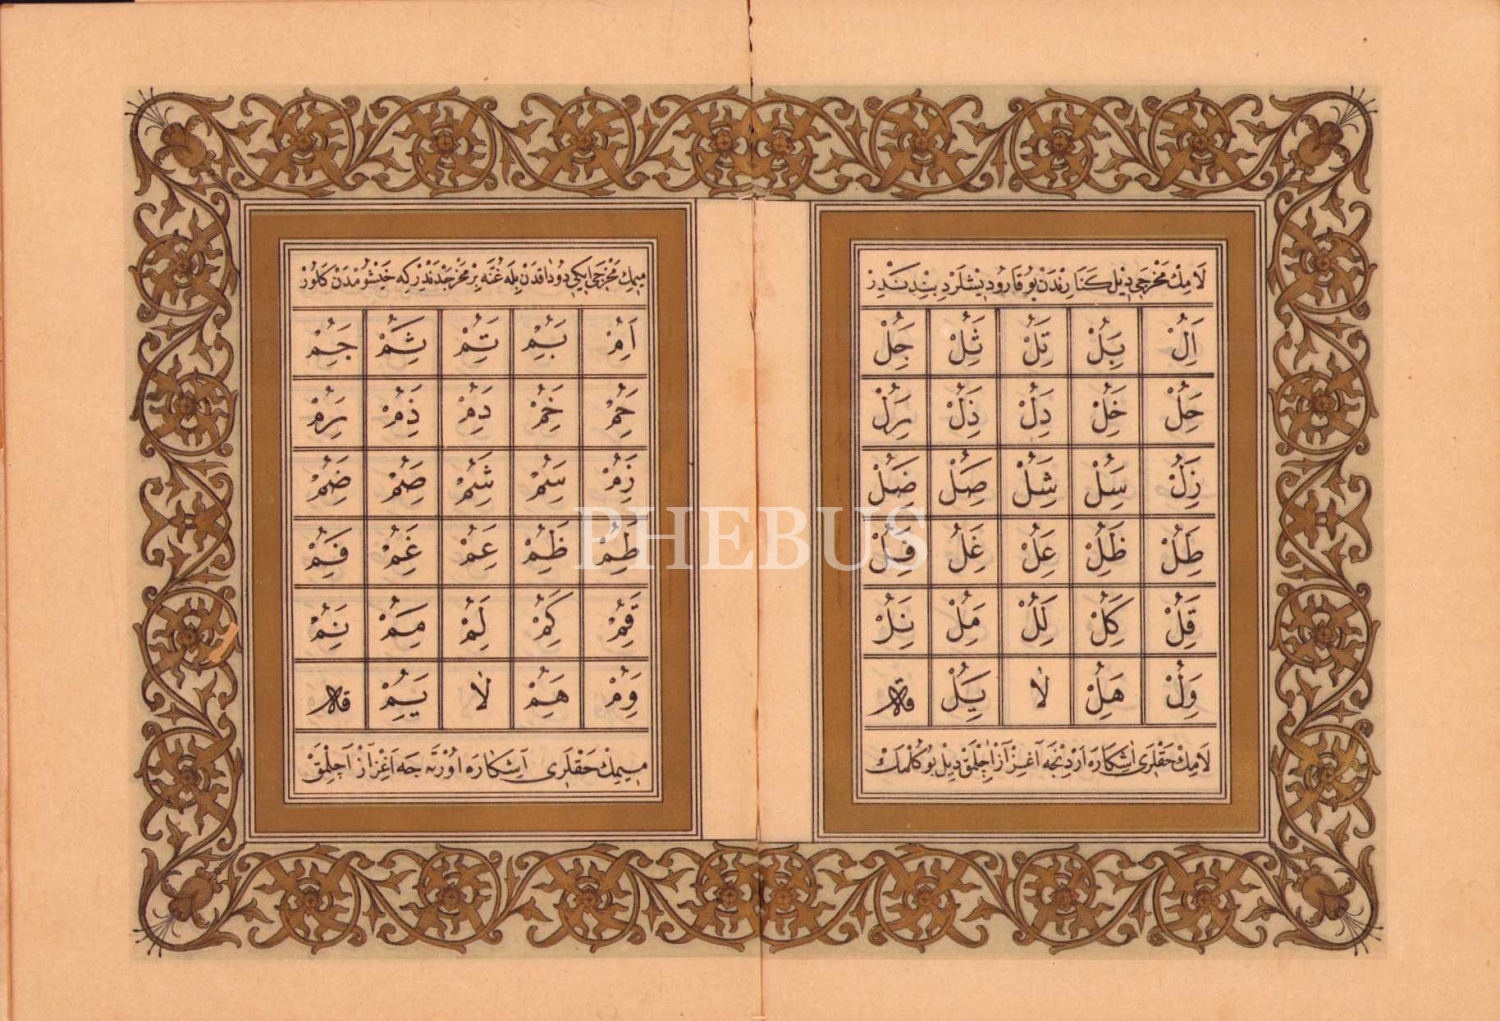 لَامِڭ مَخْرَجِي دِيل كَنَارِنْدَنْ يُوقَارُو دِيشْلَرْدِبِنْدَنْدِرْ
اَلُ بِلُ تِلُ ثِلُ جُلْ
حِلُ خُلِ دِلُ ذِلُ رِلُ
زِلُ سُلِ شُلَ صِلُ ضُلَ
طِلُ ظُلِ عِلُ غَلُ فِلُ
قِلُ كِلُ لِلَ مِلُ نِلُ
وِلُ هَلُ لَا يِلُ
لَامِڭ حَقْلَرِى اٰشِكَارَه اَرْدِنْجَه آغِزْ آزْ اٰچِلْمَقْ دِيلْ بُوكُلْمَكْ
مِيمِڭ مَخْرَجِي اِيكِي دُودَاقْدَنْ بِلَه غُنَّه بِرْ مَخْرَجْدَنْدِرْ كِه خَيْشُومْدَنْ كَلُورْ
اَمُ بُمِ تُمِ ثُمِ جُمِ
حُمِ خُمِ دِمُ ذِمُ رِمُ
زِمُ سِمُ شِمُ صِمُ ضِمُ
طِمُ ظُمِ عِمُ غُمِ فُمِ
قُمِ كُمِ لِمُ مُمِ نُمِ
وِمُ هُمِ لَا يُمِ
مِيمِڭ حَقْلَرِى آشِكَارَه اُورْتَه جَه آغِزْ آزْ آچِلْمَقْ
PHEBUS